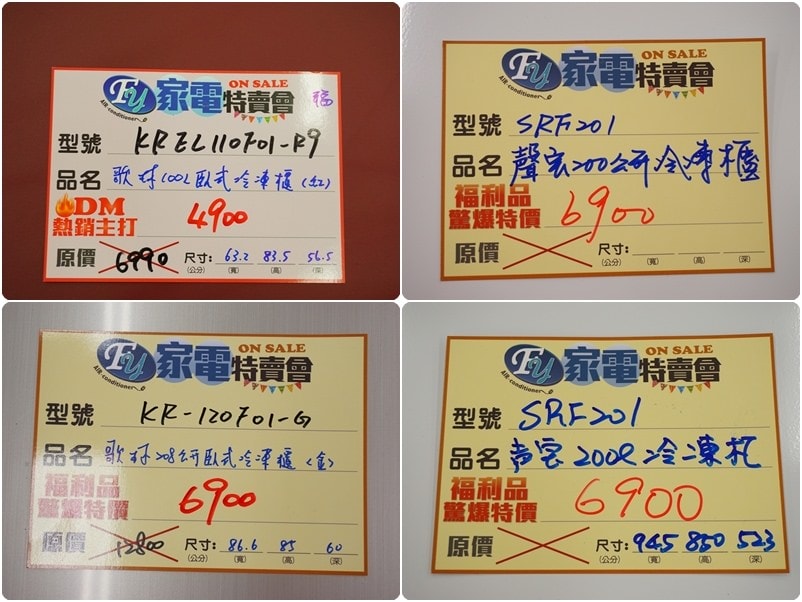 FY 家電特賣會 ON SALE
AIR-conditioner
福
型號 KREL110F01-R9
品名 歌林100L臥式冷凍櫃(紅)
DM
熱銷主打 4900
原價 6990 尺寸: 63.2 83.5 56.5
(公分) (寬) (高) (深)
FY 家電特賣會 ON SALE
AIR-conditioner
型號 SRF201
品名 聲寶200公升冷凍櫃
福利品
驚爆特價 6900
原價 尺寸:
(公分) (寬) (高) (深)
FY 家電特賣會 ON SALE
AIR-conditioner
型號 KR-120F01-G
品名 歌林208公升臥式冷凍櫃(金)
福利品
驚爆特價 6900
原價 12800 尺寸: 86.6 85 60
(公分) (寬) (高) (深)
FY 家電特賣會 ON SALE
AIR-conditioner
型號 SRF201
品名 声宝200L冷凍柜
福利品
驚爆特價 6900
原價 尺寸: 945 850 523
(公分) (寬) (高) (深)